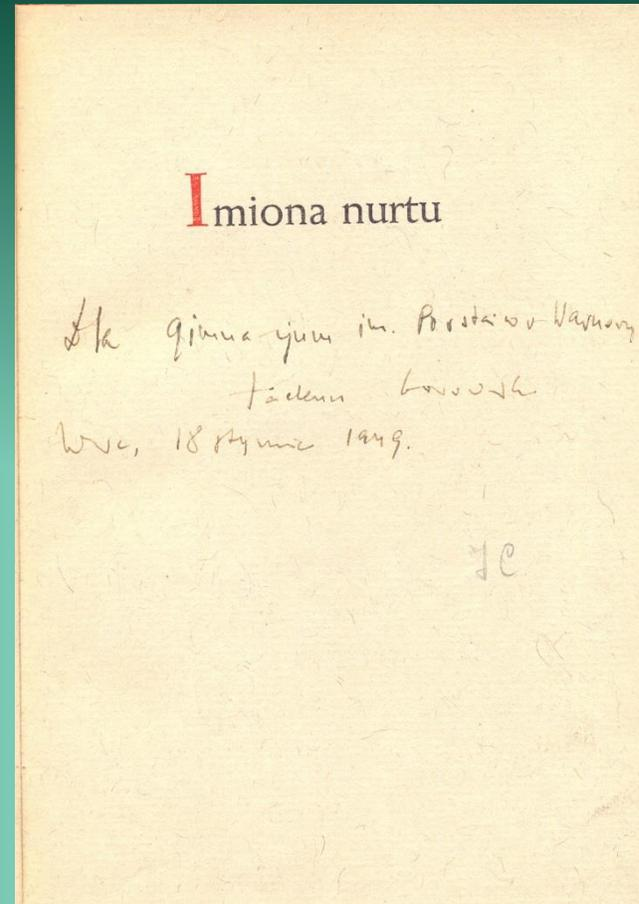 Imiona nurtu
Dla Gimnazjum im. Powstańców Warszawy
Tadeusz Borowski
Wwa, 18 stycznia 1949.
JC